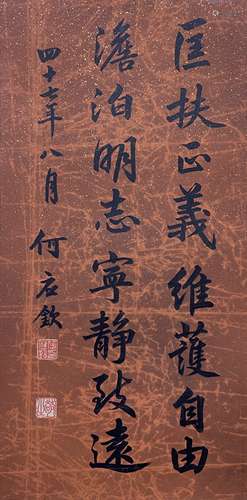 匡扶正義維護自由
澹泊明志寧靜致遠
四十七年八月
何应欽